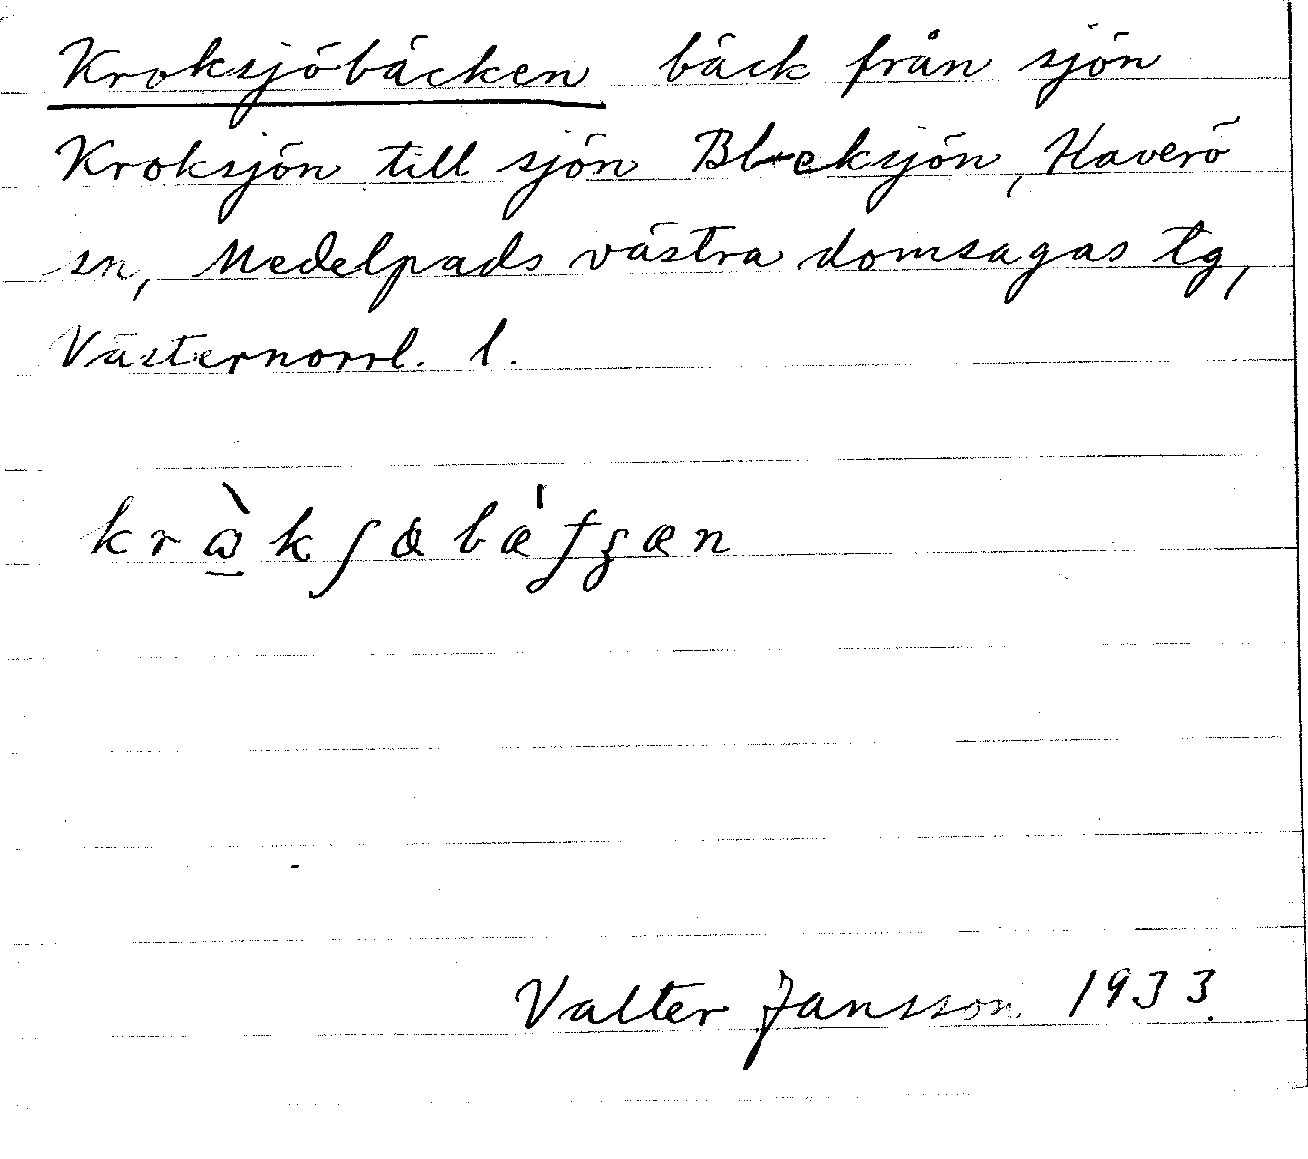 Kroksjöbäcken bäck från sjön
Kroksjön till sjön Blecksjön, Haverö
sn, Medelpads västra domsagas tg,
Västernorrl. l.
Valter Jansson 1933.